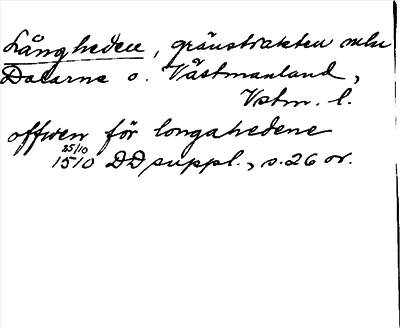 Långheden, gränstrakten mln
Dalarne o. Västmanland,
Vstm. l.
offwen för longahedene
25/10
1510 DD suppl., s. 26 or.